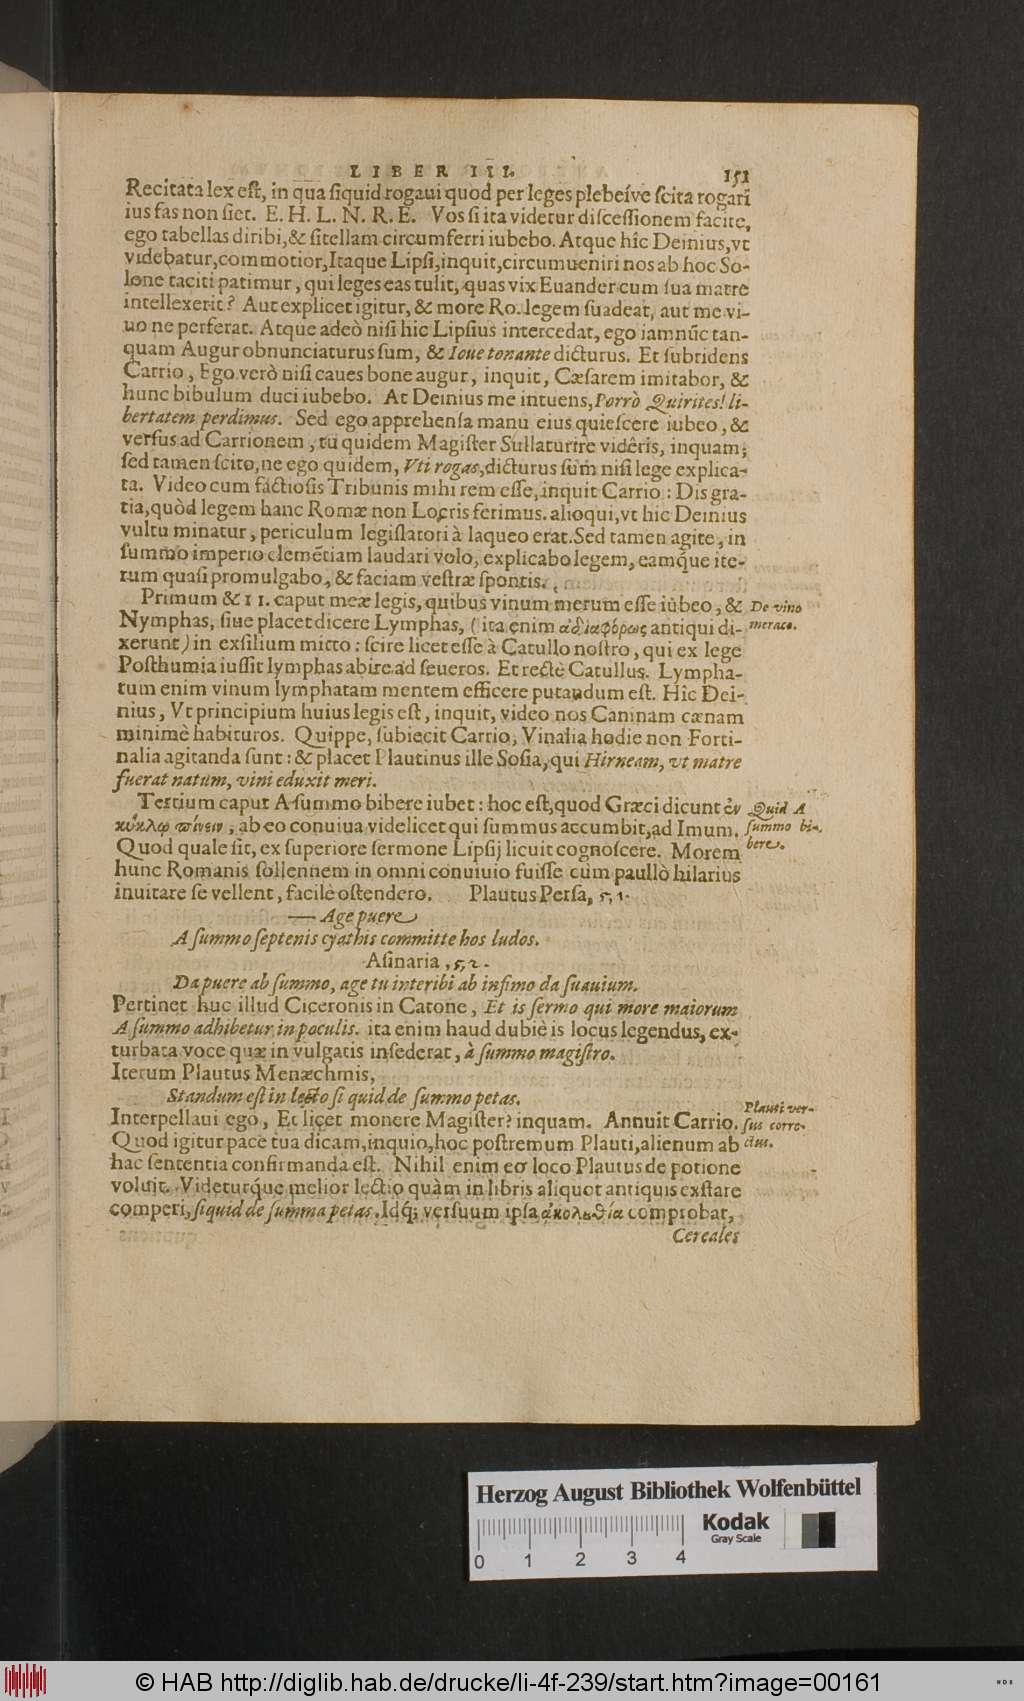 LIBER III.
151
Recitata lex est, in qua siquid rogaui quod per leges plebeíve scita rogari
ius fas non siet. E. H. L. N. R. E. Vos si ita videtur discessionem facite,
ego tabellas diribi, & sitellam circumferri iubebo. Atque hîc Deinius, vt
videbatur, commotior, Itaque Lipsi, inquit, circumueniri nos ab hoc So-
lone taciti patimur, qui leges eas tulit, quas vix Euander cum sua matre
intellexerit? Aut explicet igitur, & more Ro. legem suadeat, aut me vi-
uo ne perferat. Atque adeò nisi hic Lipsius intercedat, ego iamnūc tan-
quam Augur obnunciaturus sum, & Ioue tonante dicturus. Et subridens
Carrio, Ego verò nisi caues bone augur, inquit, Cæsarem imitabor, &
hunc bibulum duci iubebo. At Deinius me intuens, Porrò Quirites! li-
bertatem perdimus. Sed ego apprehensa manu eius quiescere iubeo, &
versus ad Carrionem, tu quidem Magister Sullaturire vidêris, inquam;
sed tamen scito, ne ego quidem, Vti rogas, dicturus sum nisi lege explica-
ta. Video cum factiosis Tribunis mihi rem esse, inquit Carrio: Dis gra-
tia, quòd legem hanc Romæ non Locris ferimus. alioqui, vt hic Deinius
vultu minatur, periculum legislatori à laqueo erat. Sed tamen agite, in
summo imperio clemētiam laudari volo, explicabo legem, eamq́ue ite-
rum quasi promulgabo, & faciam vestræ spontis.
Primum & 11. caput meæ legis, quibus vinum merum esse iubeo, &
De vino
Nymphas, siue placet dicere Lymphas, (ita enim ἀδιαφόρως antiqui di-
meraco.
xerunt) in exsilium mitto: scire licet esse à Catullo nostro, qui ex lege
Posthumia iussit lymphas abire ad seueros. Et rectè Catullus. Lympha-
tum enim vinum lymphatam mentem efficere putandum est. Hîc Dei-
nius, Vt principium huius legis est, inquit, video nos Caninam cænam
minimè habituros. Quippe, subiecit Carrio, Vinalia hodie non Forti-
nalia agitanda sunt: & placet Plautinus ille Sosia, qui Hirneam, vt matre
fuerat natum, vini eduxit meri.
Tertium caput A summo bibere iubet: hoc est, quod Græci dicunt ἐν
Quid A
κύκλῳ πίνειν, ab eo conuiua videlicet qui summus accumbit, ad Imum.
summo bi-
Quod quale sit, ex superiore sermone Lipsij licuit cognoscere. Morem
bere.
hunc Romanis sollennem in omni conuiuio fuisse cùm paullò hilarius
inuitare se vellent, facilè ostendero. Plautus Persa, 5, 1.
— Age puere
A summo septenis cyathis committe hos ludos.
Asinaria, 5, 2.
Da puere ab summo, age tu interibi ab infimo da suauium.
Pertinet huc illud Ciceronis in Catone, Et is sermo qui more maiorum
A summo adhibetur in poculis. ita enim haud dubiè is locus legendus, ex-
turbata voce quæ in vulgatis insederat, à summo magistro.
Iterum Plautus Menæchmis,
Standum est in lecto si quid de summo petas.
Plauti ver-
Interpellaui ego, Et licet monere Magister? inquam. Annuit Carrio.
sus corre-
Quod igitur pace tua dicam, inquio, hoc postremum Plauti, alienum ab
ctus.
hac sententia confirmanda est. Nihil enim eo loco Plautus de potione
voluit. Videturq́ue melior lectio quàm in libris aliquot antiquis exstare
comperi, siquid de summa petas. Idq́; versuum ipsa ἀκολουθία comprobat,
Cereales
Herzog August Bibliothek Wolfenbüttel
Kodak
Gray Scale
0 1 2 3 4
© HAB http://diglib.hab.de/drucke/li-4f-239/start.htm?image=00161